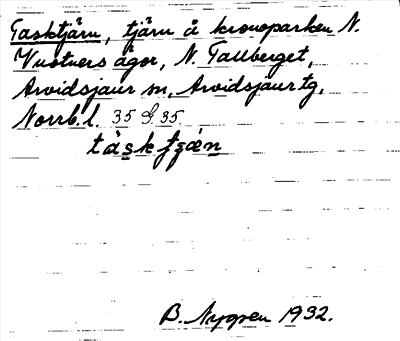 Tasktjärn, tjärn å kronoparken N.
Vuotners ägor, N. Tallberget,
Arvidsjaur sn, Arvidsjaur tg,
Norrb.l. 35 G. 35.
B. Nygren 1932.